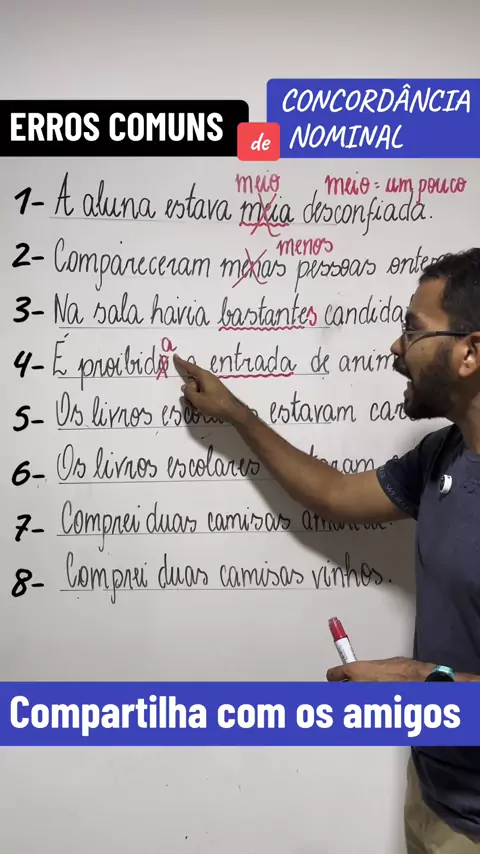 CONCORDÂNCIA
ERROS COMUNS de NOMINAL
meio meio = um pouco
1- A aluna estava meia desconfiada.
menos
2- Compareceram menas pessoas
3- Na sala havia bastantes
a
4- É proibido a entrada de
5- Os livros estavam
6- Os livros escolares
7- Comprei duas camisas
8- Comprei duas camisas vinhos.
Compartilha com os amigos